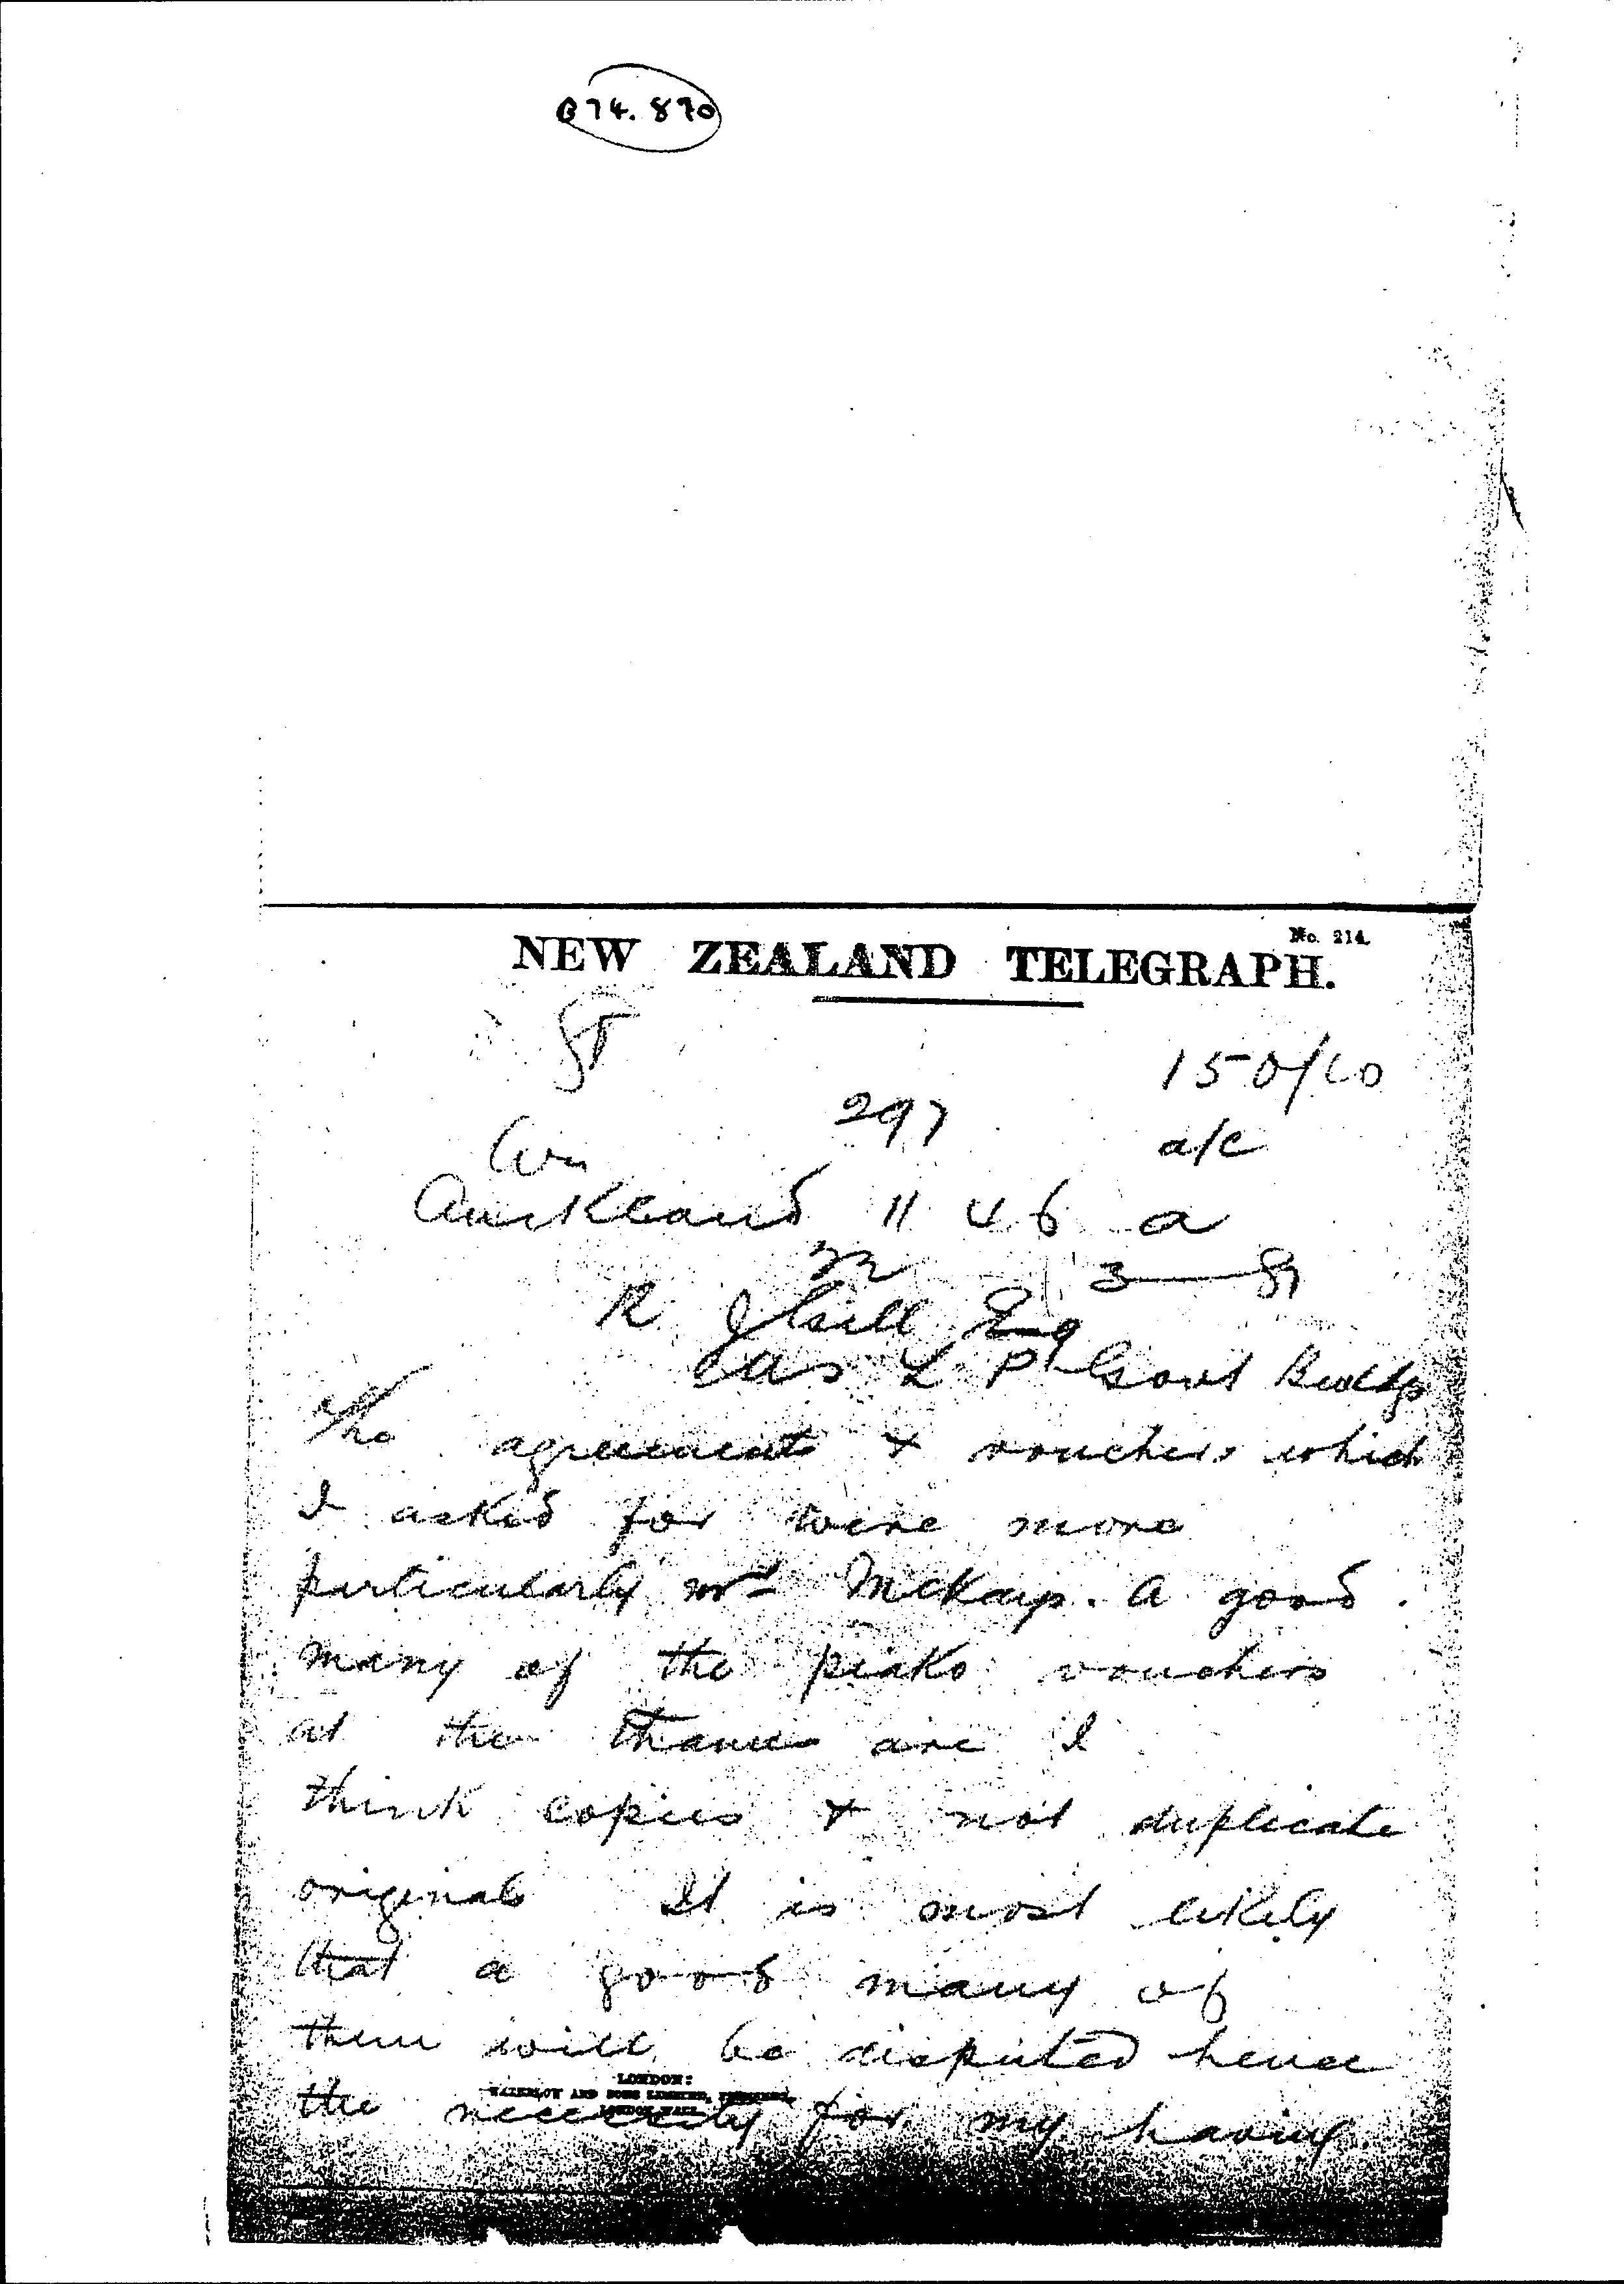 B74.870
No. 214.
NEW ZEALAND TELEGRAPH.
150/10
297
a/c
Auckland 11 46 a
3 — 81
R J Gill Esq
L P Govt Buildgs
The agreements & vouchers which
I asked for were more
particularly Mr McKays. A good
many of the piako vouchers
at the thames are I
think copies & not duplicate
originals It is most likely
that a good many of
them will be disputed hence
LONDON:
WATERLOW AND SONS LIMITED, PRINTERS,
LONDON WALL.
the necessity for my having